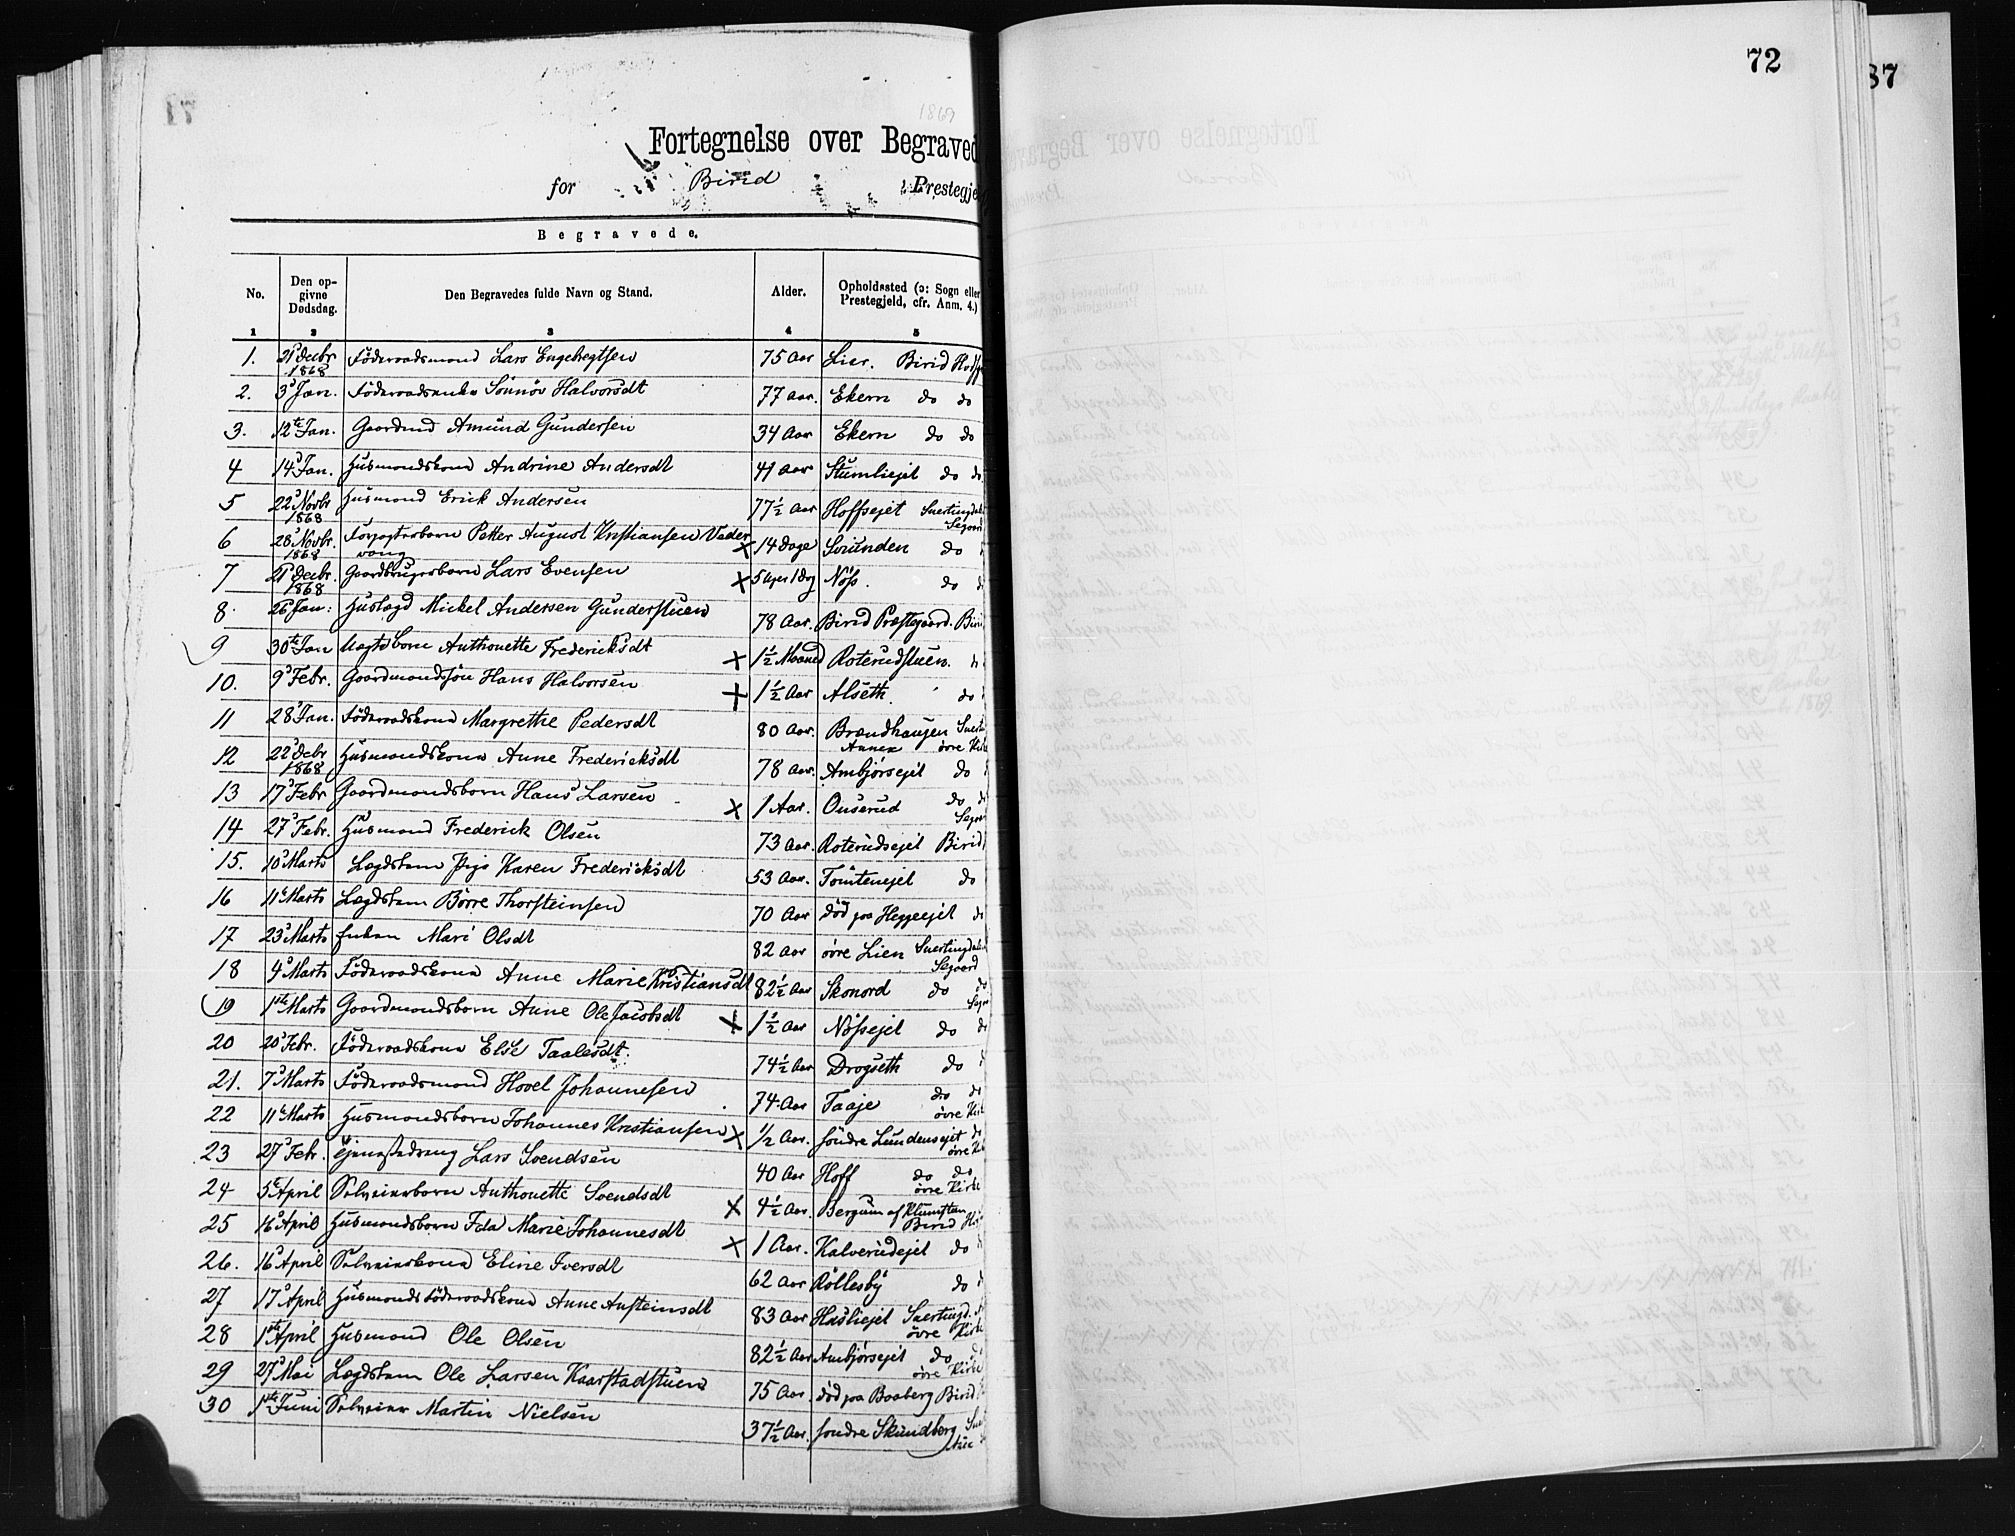 72
87
1869
Fortegnelse over Begraved
for Birid Prestegje
Begravede.
No. Den opgivne Dødsdag. Den Begravedes fulde Navn og Stand. Alder. Opholdssted (ɔ: Sogn eller Prestegjeld, cfr. Anm. 4.)
1 2 3 4 5
1. 21 Decbr 1868 Föderaadsmand Lars Engebregtsen 75 Aar Lier. Birid
2. 3 Jan. Föderaadsenke Sönnöv Halvorsdt 77 Aar. Ekern do do
3. 12te Jan. Gaardmd Amund Gundersen 34 Aar Ekern do do
4 14 Jan. Husmandskone Andrine Andersdt 41 Aar Stumliejet do do
5 22 Novbr 1868 Husmand Erick Andersen 77½ Aar Hoffsejet Snertingdal Segaard
6 28 Novbr. 1868 Forpagterbarn Petter August Kristiansen Vedervang X 14 Dage Sviunden do
7 21 Decbr. 1868 Gaardbrugerbarn Lars Evensen X Nöss. do
8 26 Jan: Huslægd Mickel Andersen Gunderstuen 78 Aar. Birid Præstegaard. Biri
9 30te Jan Uægtebarn Anthonette Fredericksdt X 1½ Maaned Roterudstuen.
10. 9 Febr. Gaardmandssön Hans Halvorsen X 1½ Aar Alseth. do
11 28 Jan. Föderaadskone Margrethe Pedersdt 80 Aar. Brændhaugen Annex övre
12 22 Debr 1868 Husmandskone Anne Fredericksdt 78 Aar. Ambjörsejet do
13 17 Febr Gaardmandsbarn Hans Larsen X 1 Aar. Ouserud do
14 27 Febr. Husmand Frederick Olsen 73 Aar. Roterudsejet Birid
15. 10 Marts Lægdslem Pige Karen Fredericksdt 53 Aar. Tömtenejet do
16 11te Marts Lægdslem Börre Thorsteinsen 70 Aar död paa Heggeejet
17 23 Marts Enken Mari Olsdt 82 Aar övre Lien Snertingdal Segaard
18 4 Marts Föderaadskone Anne Marie Kristiansdt 82½ Aar Skonord do do
19 1ste Marts Gaardmandsbarn Anne Ole Jacobsdt X 1½ Aar Nössejet do
20 20 Febr. Föderaadskone Else Taalesdt. 74½ Aar Drogseth do
21. 7 Marts Föderaadsmand Hovel Johannesen 74 Aar Taaje do
22 11te Marts Husmandsbarn Johannes Kristiansen X ½ Aar. söndre Lundensejet övre
23 27 Febr. Lars Svendsen 40 Aar Hoff do do övre Kirke
24 5te April Selveierbarn Anthonette Svendsdt X 4½ Aar. Bergum af Klumsten Birid
25 16 April Husmandsbarn Ida Marie Johannesdt X 1 Aar. Kalverudejet do
26. 16 April Selveierkone Eline Iversdt 62 Aar Röllesby do
27 17 April Husmands Föderaadskone Anne Austeinsdt 83 Aar Hasliejet Snertingd. övre Kirke
28 1ste April Husmand Ole Olsen 82½ Aar Ambjörsejet do övre Kirke
29 27 Mai Lægdslem Ole Larsen Kaarstadstuen 75 Aar död paa Baaberg Birid
30 1ste Juni Selveier Martin Nielsen 37½ Aar. söndre Skundberg